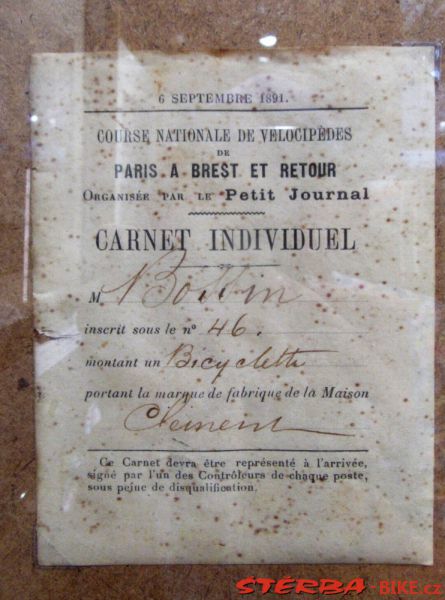 6 SEPTEMBRE 1891.
COURSE NATIONALE DE VÉLOCIPÈDES
DE
PARIS A BREST ET RETOUR
ORGANISÉE PAR LE Petit Journal
CARNET INDIVIDUEL
M
inscrit sous le nº 46.
montant un Bicyclette
portant la marque de fabrique de la Maison
Clement
Ce Carnet devra être représenté à l'arrivée,
signé par l'un des Contrôleurs de chaque poste,
sous peine de disqualification.
ŠTĚRBA-BIKE.cz